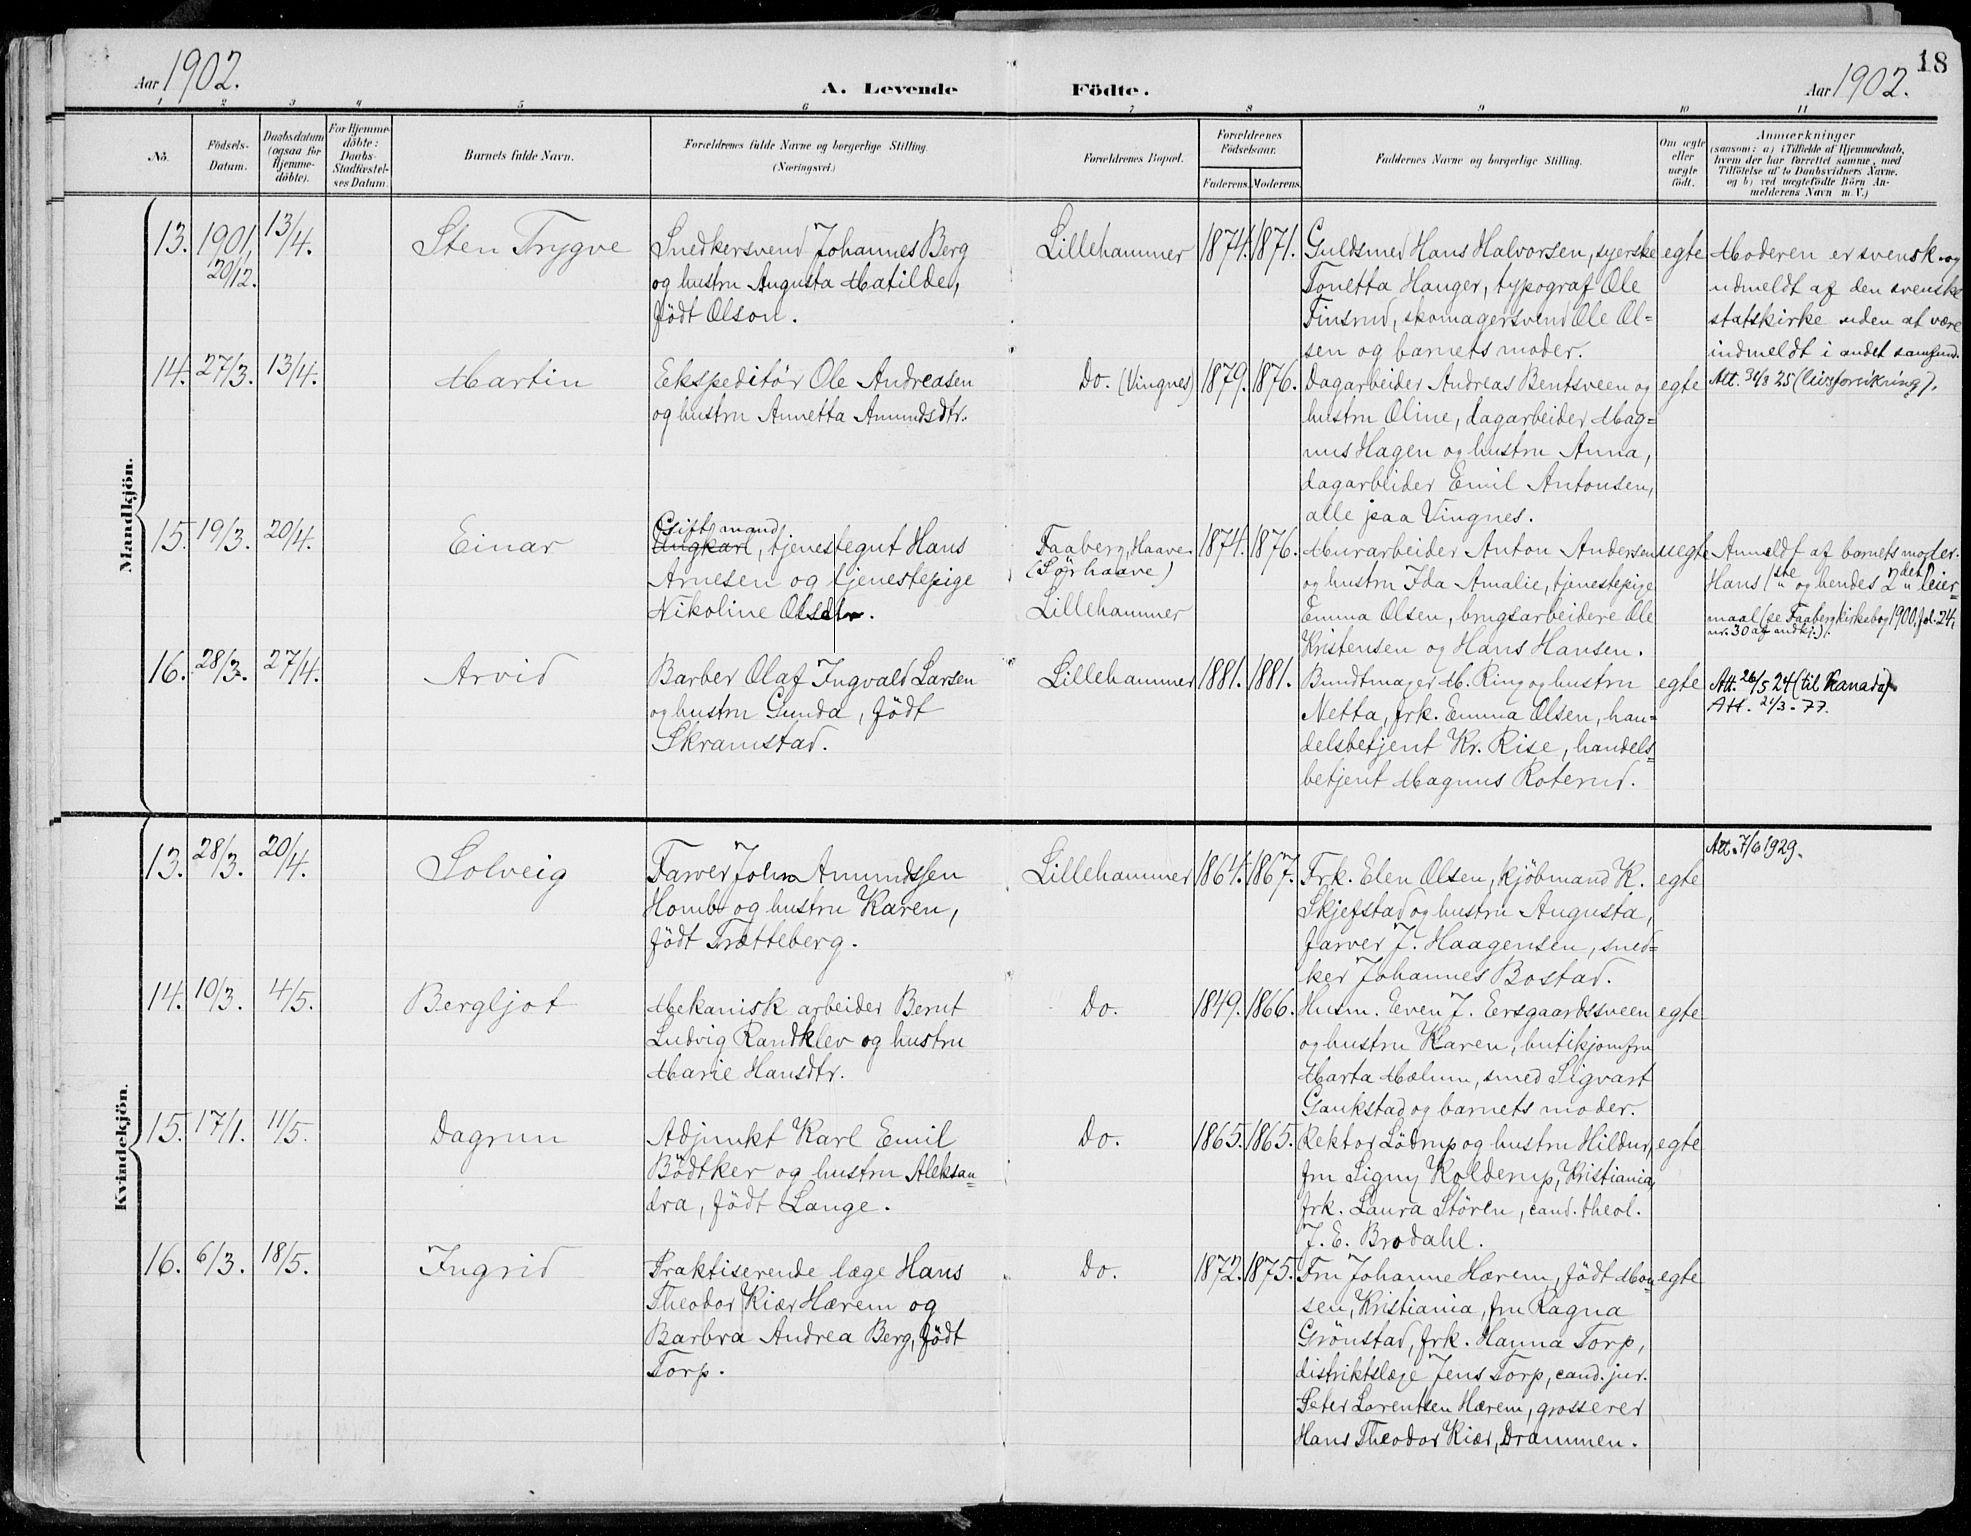 18
Aar 1902.
A. Levende Födte.
Aar 1902.
1 2 3 4 5 6 7 8 9 10 11
No.
Födsels-
Datum.
Daabsdatum
(ogsaa for
Hjemme-
döbte).
For Hjemme-
döbte:
Daabs-
Stadfæstel-
ses Datum.
Barnets fulde Navn.
Forældrenes fulde Navne og borgerlige Stilling.
(Næringsvei.)
Forældrenes Bopæl.
Forældrenes
Födselsaar.
Faderens. Moderens.
Faddernes Navne og borgerlige Stilling.
Om ægte
eller
uægte
födt.
Anmærkninger
(saasom: a) i Tilfælde af Hjemmedaab,
hvem der har forrettet samme, med
Tilföielse af to Daabsvidners Navne.
og b) ved uægtefödte Börn An-
melderens Navn m. V.)
Mandkjön.
13.
1901,
20/12.
13/4.
Sten Trygve
Snedkersvend Johannes Berg
og hustru Augusta Matilde,
födt Olson.
Lillehammer
1874.
1871.
Guldsmed Hans Halvorsen, syerske
Tonetta Hauger, typograf Ole
Finsrud, skomagersvend Ole Ol=
sen og barnets moder.
egte
Moderen er svensk og
udmeldt af den svenske
statskirke uden at være
indmeldt i andet samfund.
14.
27/3.
13/4.
Martin
Ekspeditör Ole Andreasen
og hustru Annetta Amundsdtr.
Do. (Vingnes)
1879.
1876.
Dagarbeider Andreas Bentsveen og
hustru Oline, dagarbeider Mag=
nus Hagen og hustru Anna,
dagarbeider Emil Antonsen,
alle paa Vingnes.
egte
Att. 31/3 25 (livsforsikring).
15.
19/3.
20/4.
Einar
Gift mand
Ungkarl, tjenestegut Hans
Arnesen og tjenestepige
Nikoline Olsdtr.
Faaberg, Haave
(Sörhaave)
Lillehammer
1874.
1876.
Murarbeider Anton Andersen
og hustru Ida Amalie, tjenestepige
Emma Olsen, brugsarbeidere Ole
Kristensen og Hans Hansen.
uegte
Anmeldt af barnets moder.
Hans 1ste og hendes 2det leier=
maal (se Faaberg kirkebog 1900, fol. 24,
nr. 30 af mdkj.).
16.
28/3.
27/4.
Arvid
Barber Olaf Ingvald Larsen
og hustru Gunda, födt
Skramstad.
Lillehammer
1881.
1881.
Bundtmager M. Ring og hustru
Netta, frk. Emma Olsen, han=
delsbetjent Kr. Rise, handels=
betjent Magnus Roterud.
egte
Att. 26/5 24 (til Kanada).
Att. 21/3-77.
Kvindekjön.
13.
28/3.
20/4.
Solveig
Farver John Amundssen
Homb og hustru Karen,
födt Trætteberg.
Lillehammer
1864.
1867.
Frk. Elen Olsen, kjöbmand K.
Skjefstad og hustru Augusta,
farver J. Haagensen, sned=
ker Johannes Bostad.
egte
Att. 7/6 1929.
14.
10/3.
4/5.
Bergljot
Mekanisk arbeider Bernt
Ludvig Randklev og hustru
Marie Hansdtr.
Do.
1849.
1866.
Husm. Even J. Ersgaardssveen
og hustru Karen, butikjomfru
Marta Mælum, smed Sigvart
Gaukstad og barnets moder.
egte
15.
17/1.
11/5.
Dagrun
Adjunkt Karl Emil
Bödtker og hustru Aleksan=
dra, födt Lange.
Do.
1865.
1865.
Rektor Lödrup og hustru Hildur,
fru Signy Kolderup, Kristiania,
frk. Laura Stören, cand. theol.
J. E. Brodahl.
egte
16.
6/3.
18/5.
Ingrid
Praktiserende læge Hans
Theodor Kiær Hærem og
Barbra Andrea Berg, födt
Torp.
Do.
1872.
1875.
Fru Johanne Hærem, födt Mon=
sen, Kristiania, fru Ragna
Grönstad, frk. Hanna Torp,
distriktslæge Jens Torp, cand. jur.
Peter Lorentsen Hærem, grosserer
Hans Theodor Kiær, Drammen.
egte